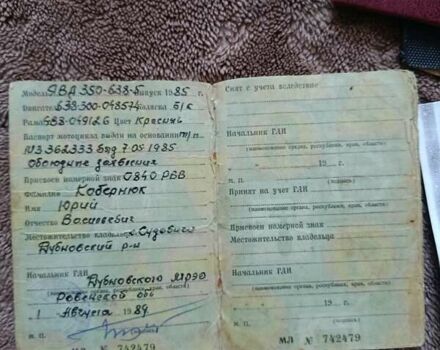 Модель ЯВА 350-638-5 выпуск 1985 г.
Двигатель 638-300-048574 Коляска б/к
Рама 638-049126 Цвет Красный
Паспорт мотоцикла выдан на основании
МЗ 362333 7.05.1985
Присвоен номерной знак 0840 РВВ
Фамилия Кобернюк
Имя Юрий
Отчество Васильевич
Местожительство владельца
Дубновский р-н
Начальник ГАИ
Дубновского МРЭО
Ровенской обл
(наименование органа, республики, края, области)
"1" Августа 1989 г.
М. П.
МЛ № 742479
Снят с учета вследствие
Начальник ГАИ
(наименование органа, республики, края, области)
19 г.
М. П. (подпись)
Принят на учет ГАИ
(наименование органа, республики, края, области)
Присвоен номерной знак
Местожительство владельца
Начальник ГАИ
(наименование органа, республики, края, области)
19 г.
М. П. (подпись)
МЛ № 742479